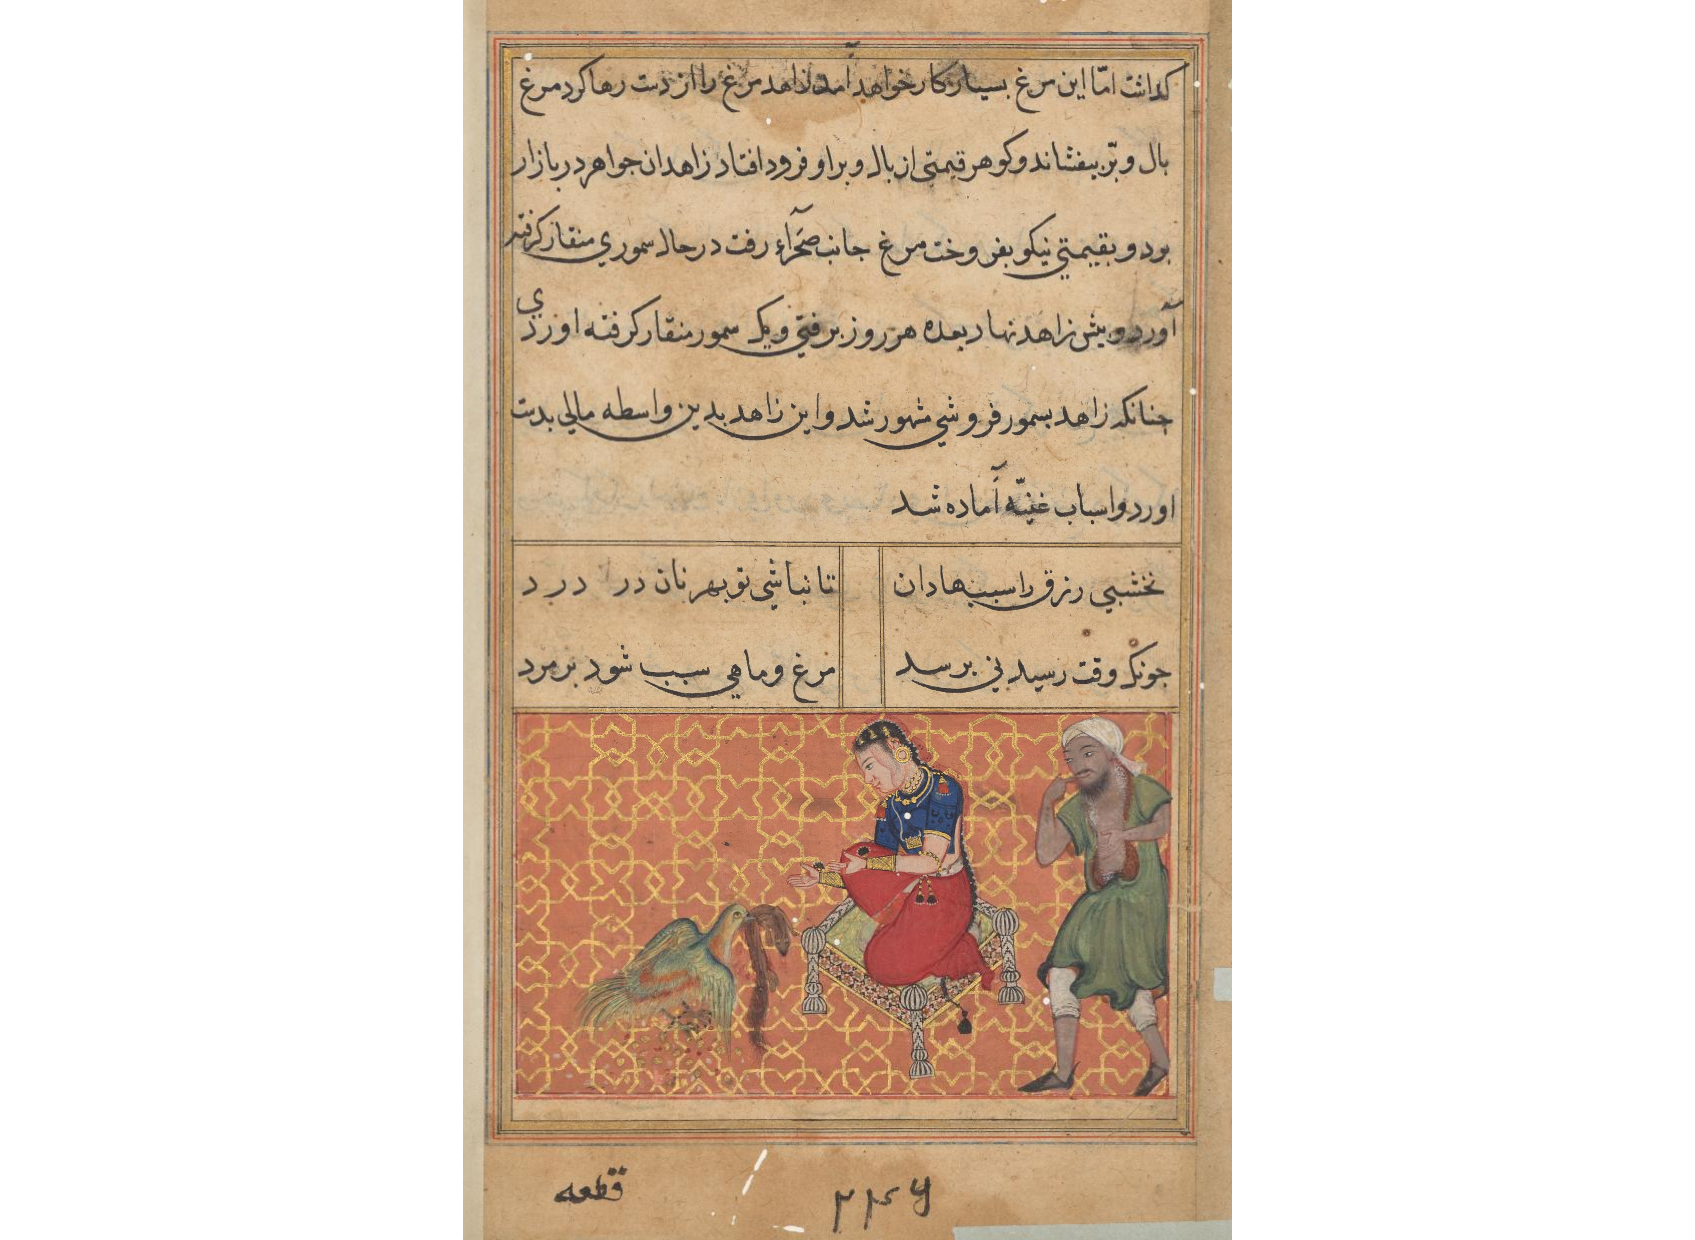 کذاشت امّا این مرغ بسیار کار خواهد آمد زاهد مرغ را از دست رها کرد مرغ
بال و پر بیفشاند و کوهر قیمتی از بال و بر او فرود افتاد زاهد ان جواهر در بازار
برد و بقیمتی نیکو بفروخت مرغ جانب صحراء رفت در حال سموری منقار کرفته
آورد و پیش زاهد نهاد بعده هر روز برفتی و یک سمور منقار کرفته اوردی
چنانکه زاهد بسمور فروشی مشهور شد و این زاهد بدین واسطه مالی بدست
اورد و اسباب غنیه آماده شد
نخشبی رزق را سببها دان تا نباشی تو بهر نان در درد
جونکه وقت رسیدنی برسد مرغ و ماهی سبب شود بر مرد
قطعه